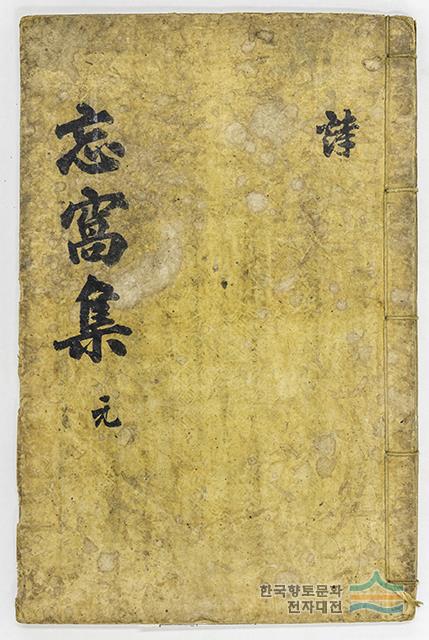 詩
忘窩集
元
한국향토문화
전자대전